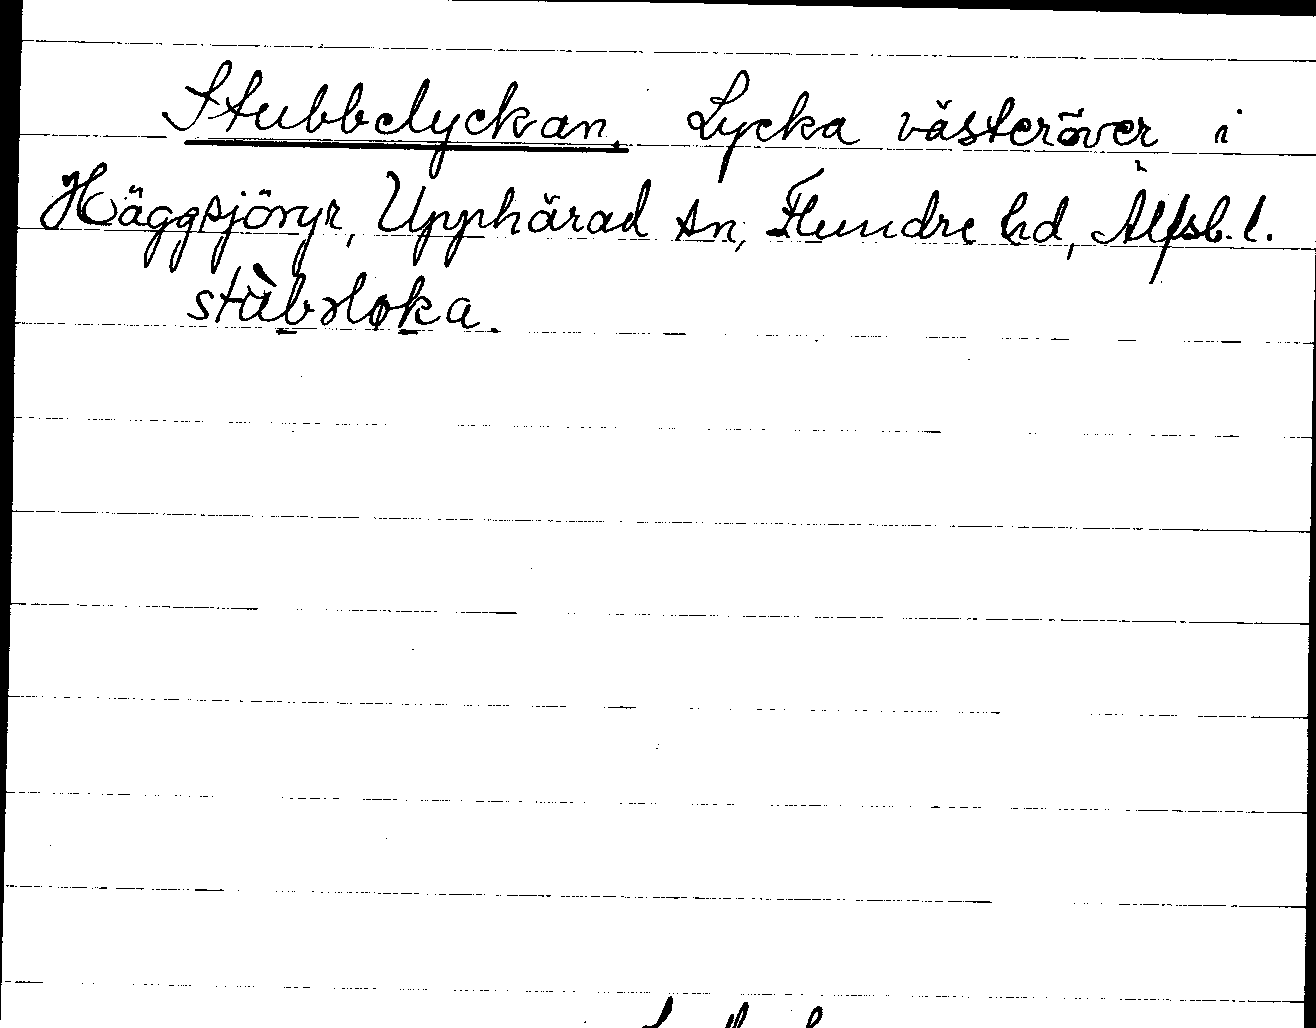 Stubbelyckan. Lycka västeröver i
Häggsjöryr, Upphärad sn, Flundre hd, Älfsb. l.
stùbəløka.